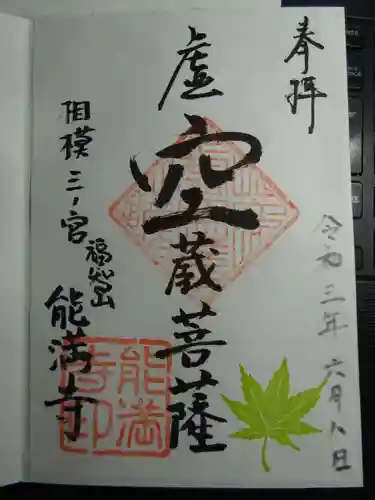 奉拝
令和三年六月八日
虚空蔵菩薩
相模三ノ宮
福嶽山
能満寺
能満
寺印